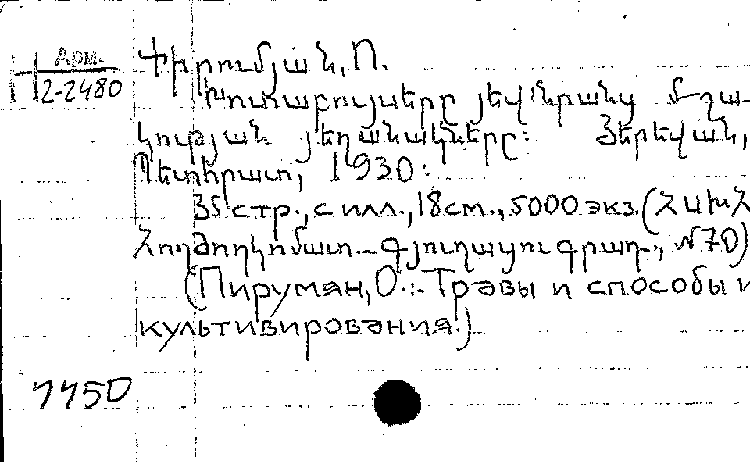 Арм.
2-2480
Փիրումյան, Ո.
Խոտաբույսերը յեվ նրանց մշա-
կության յեղանակները: Յերեվան,
Պետհրատ, 1930:
35 стр., с илл., 18 см., 5000 экз. (ՀՍԽՀ
Հողժողկոմատ_Գյուղացու գրադ., №70)
(Пируман, О.: Травы и способы и
культивирования.)
1450